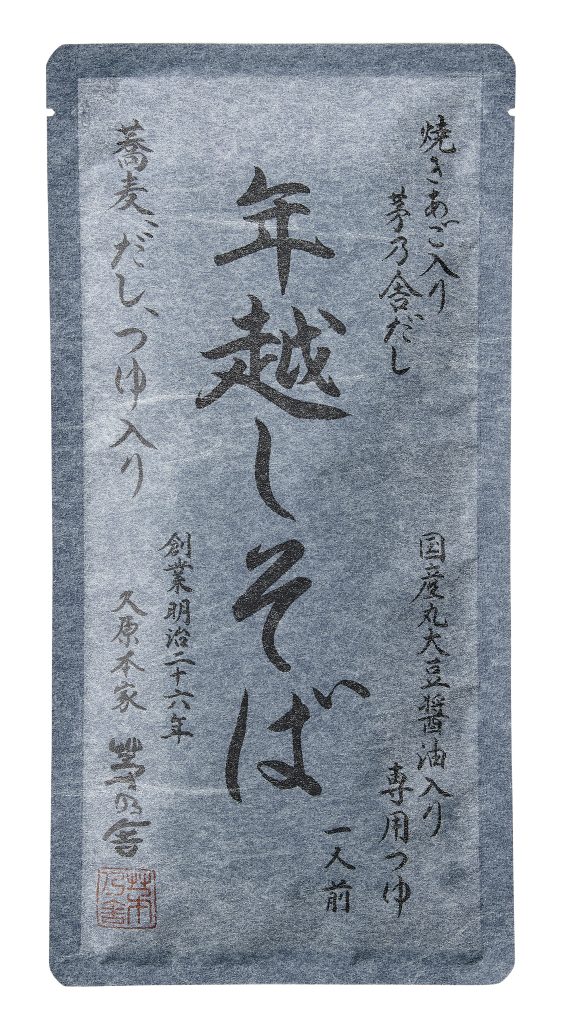 焼きあご入り
茅乃舎だし
国産丸大豆醤油入り
専用つゆ
一人前
年越しそば
創業明治二十六年
蕎麦、だし、つゆ入り
久原本家
茅乃舎
茅乃舎